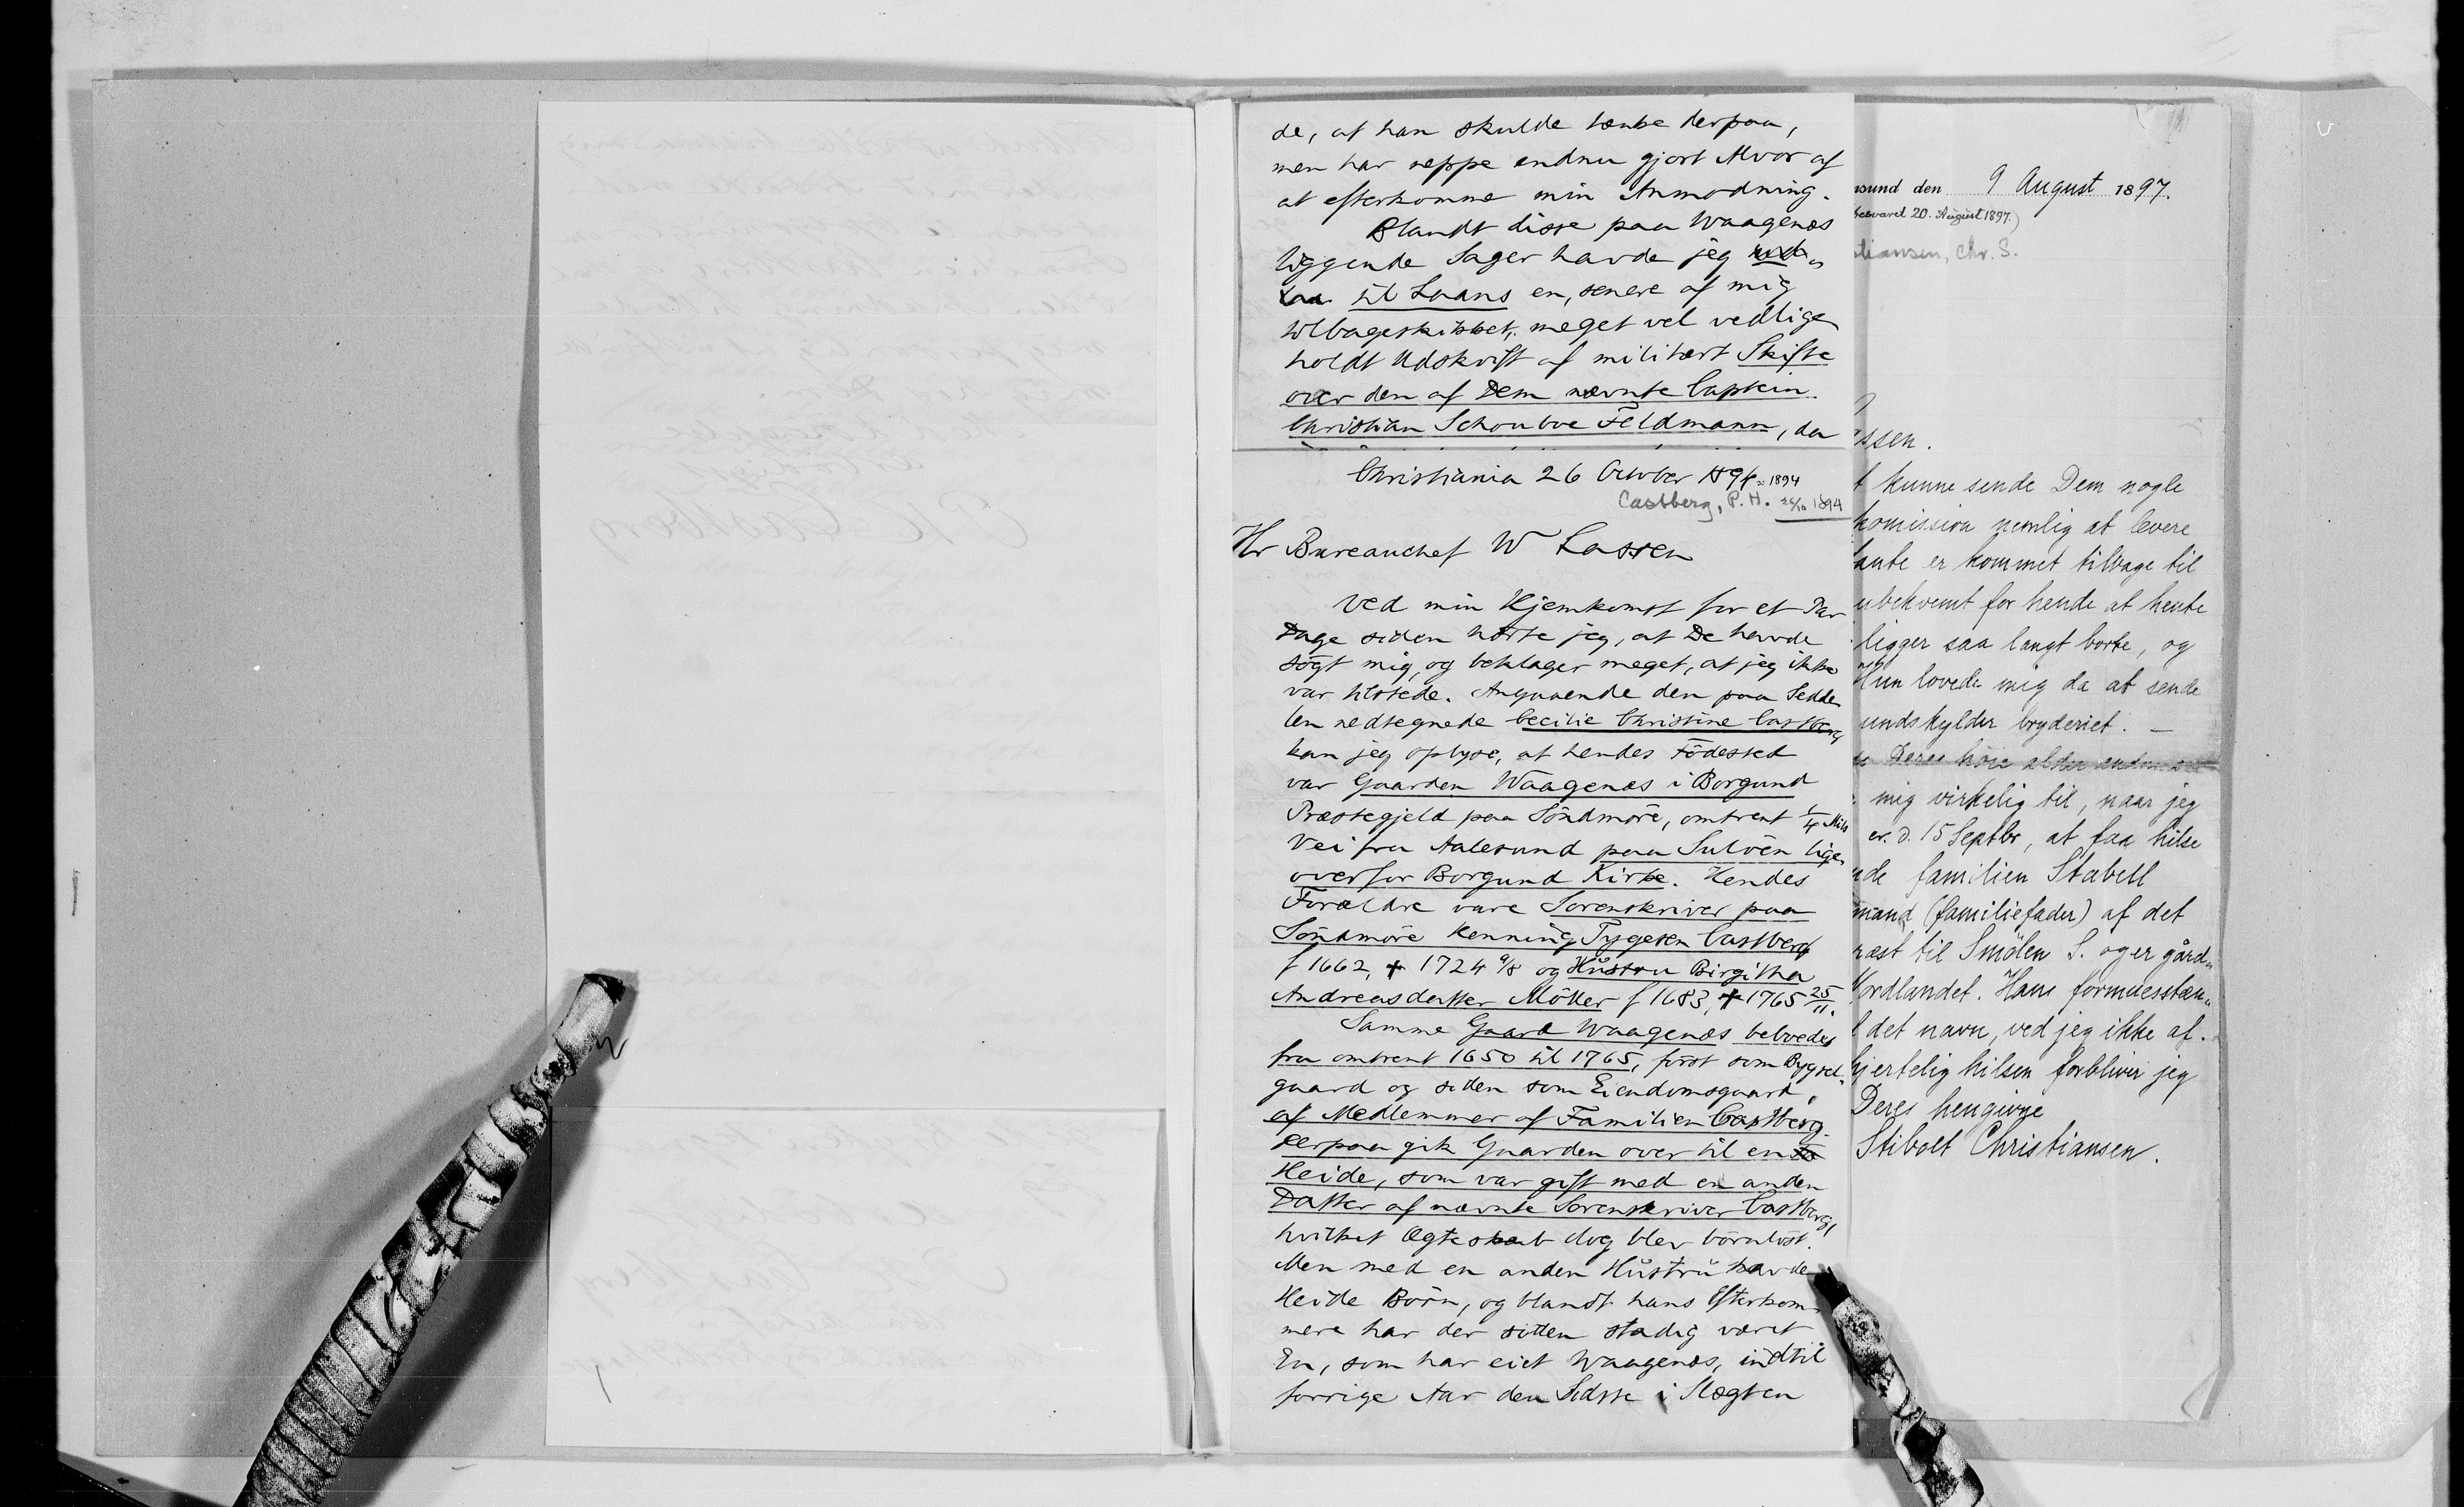 de, at han skulde tænke derpaa,
men har neppe endnu gjort Alvor af
at efterkomme min Anmodning.
Blandt disse paa Waagenæs
liggende Sager havde jeg
til Laans en, senere af mig
tilbageskikket, meget vel vedlige
holdt Udskrift af militært Skifte
over den af Dem nævnte Captein
Christian Schouboe Feldmann, da
Christiania 26 October 1894 = 1894
Castberg, P. H. 26/10 1894
Hr Bureauchef W Lassen
Ved min Hjemkomst for et Par
Dage siden hørte jeg, at De havde
søgt mig, og beklager meget, at jeg ikke
var tilstede. Angaaende den paa Sedde
len nedtegnede Cecilie Christine Castberg
kan jeg oplyse, at hendes Födested
var Gaarden Waagenæs i Borgund
Præstegjeld paa Söndmöre, omtrent 1/4 Mils
Vei fra Aalesund paa Sulöen lige
overfor Borgund Kirke. Hendes
Forældre vare Sorenskriver paa
Söndmöre Henning Tygesen Castberg
f 1662, + 1724 9/8 og Hustru Birgitha
Andreasdatter Möller f 1683, + 1765 25/11.
Samme Gaard Waagenæs beboedes
fra omtrent 1650 til 1765, först som Bygsel-
gaard og siden som Eiendomsgaard,
af Medlemmer af Familien Castberg.
Derpaa gik Gaarden over til en
Heide, som var gift med en anden
Datter af nævnte Sorenskriver Castberg,
hvilket Ægteskab dog blev börnlöst.
Men med en anden Hustru havde
Heide Börn, og blandt hans Efterkom-
mere har der siden stadig været
En, som har eiet Waagenæs, indtil
forrige Aar den Sidste i Slægten
sund den 9 August 1897.
besvaret 20. August 1897.)
tiansen, Chr. S.
assen.
t kunne sende Dem nogle
komission nemlig at levere
ante er kommet tilbage til
ubekvemt for hende at hente
ligger saa langt borte, og
Hun lovede mig da at sende
undskylder bryderiet. —
Deres höie alder
mig virkelig til, naar jeg
er. d. 15 Septbr, at faa hilse
nde familien Stabell
mand (familiefader) af det
ræst til Smölen S. og er gård-
Nordlandet. Hans formuesstæn-
l det navn, ved jeg ikke af.
hjertelig hilsen forbliver jeg
Deres hengivne
Stibolt Christiansen.